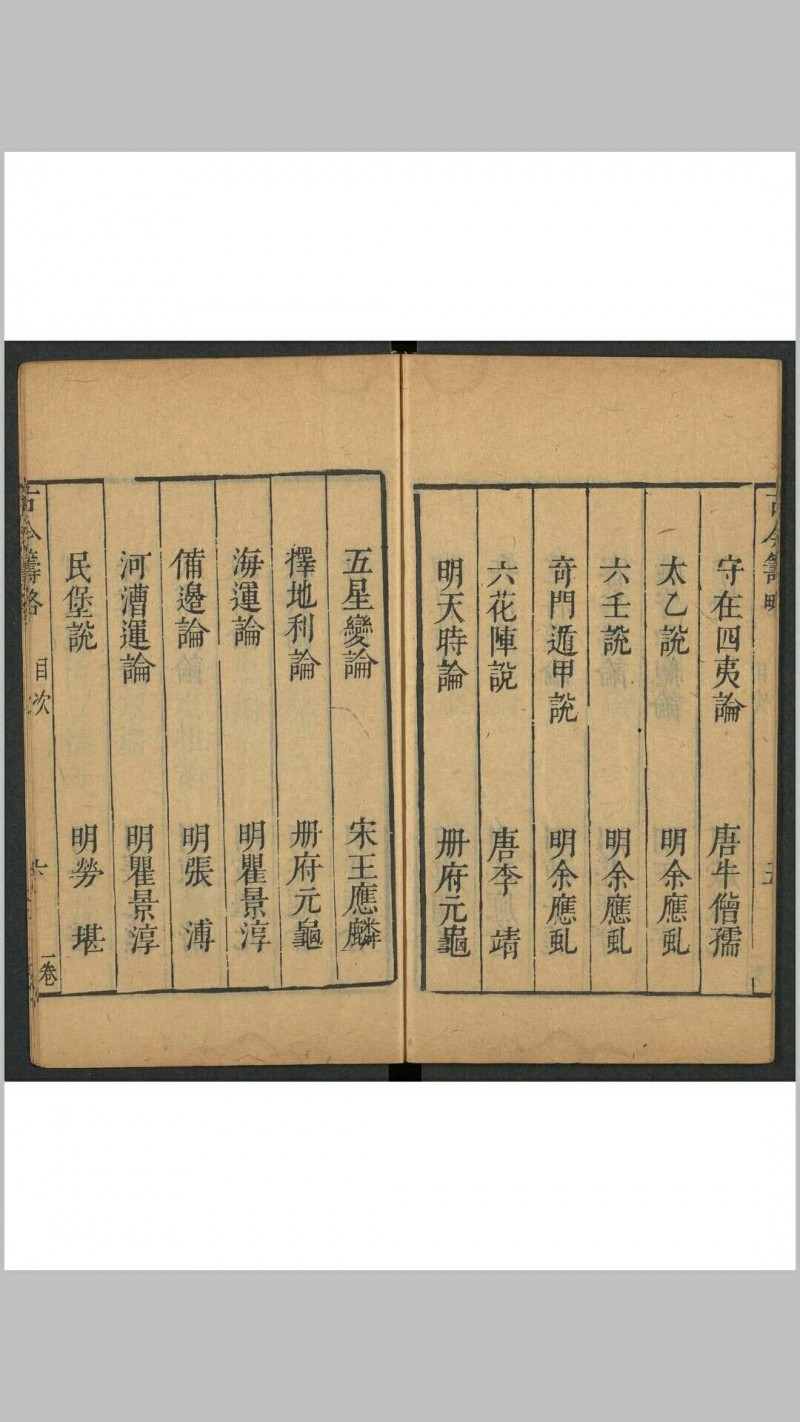 守在四夷論 唐牛僧孺
太乙說 明余應虬
六壬說 明余應虬
奇門遁甲說 明余應虬
六花陣說 唐李靖
明天時論 册府元龜
五星變論 宋王應麟
擇地利論 册府元龜
海運論 明瞿景淳
備邊論 明張溥
河漕運論 明瞿景淳
民堡說 明勞堪
古今籌略 目次 六 一卷